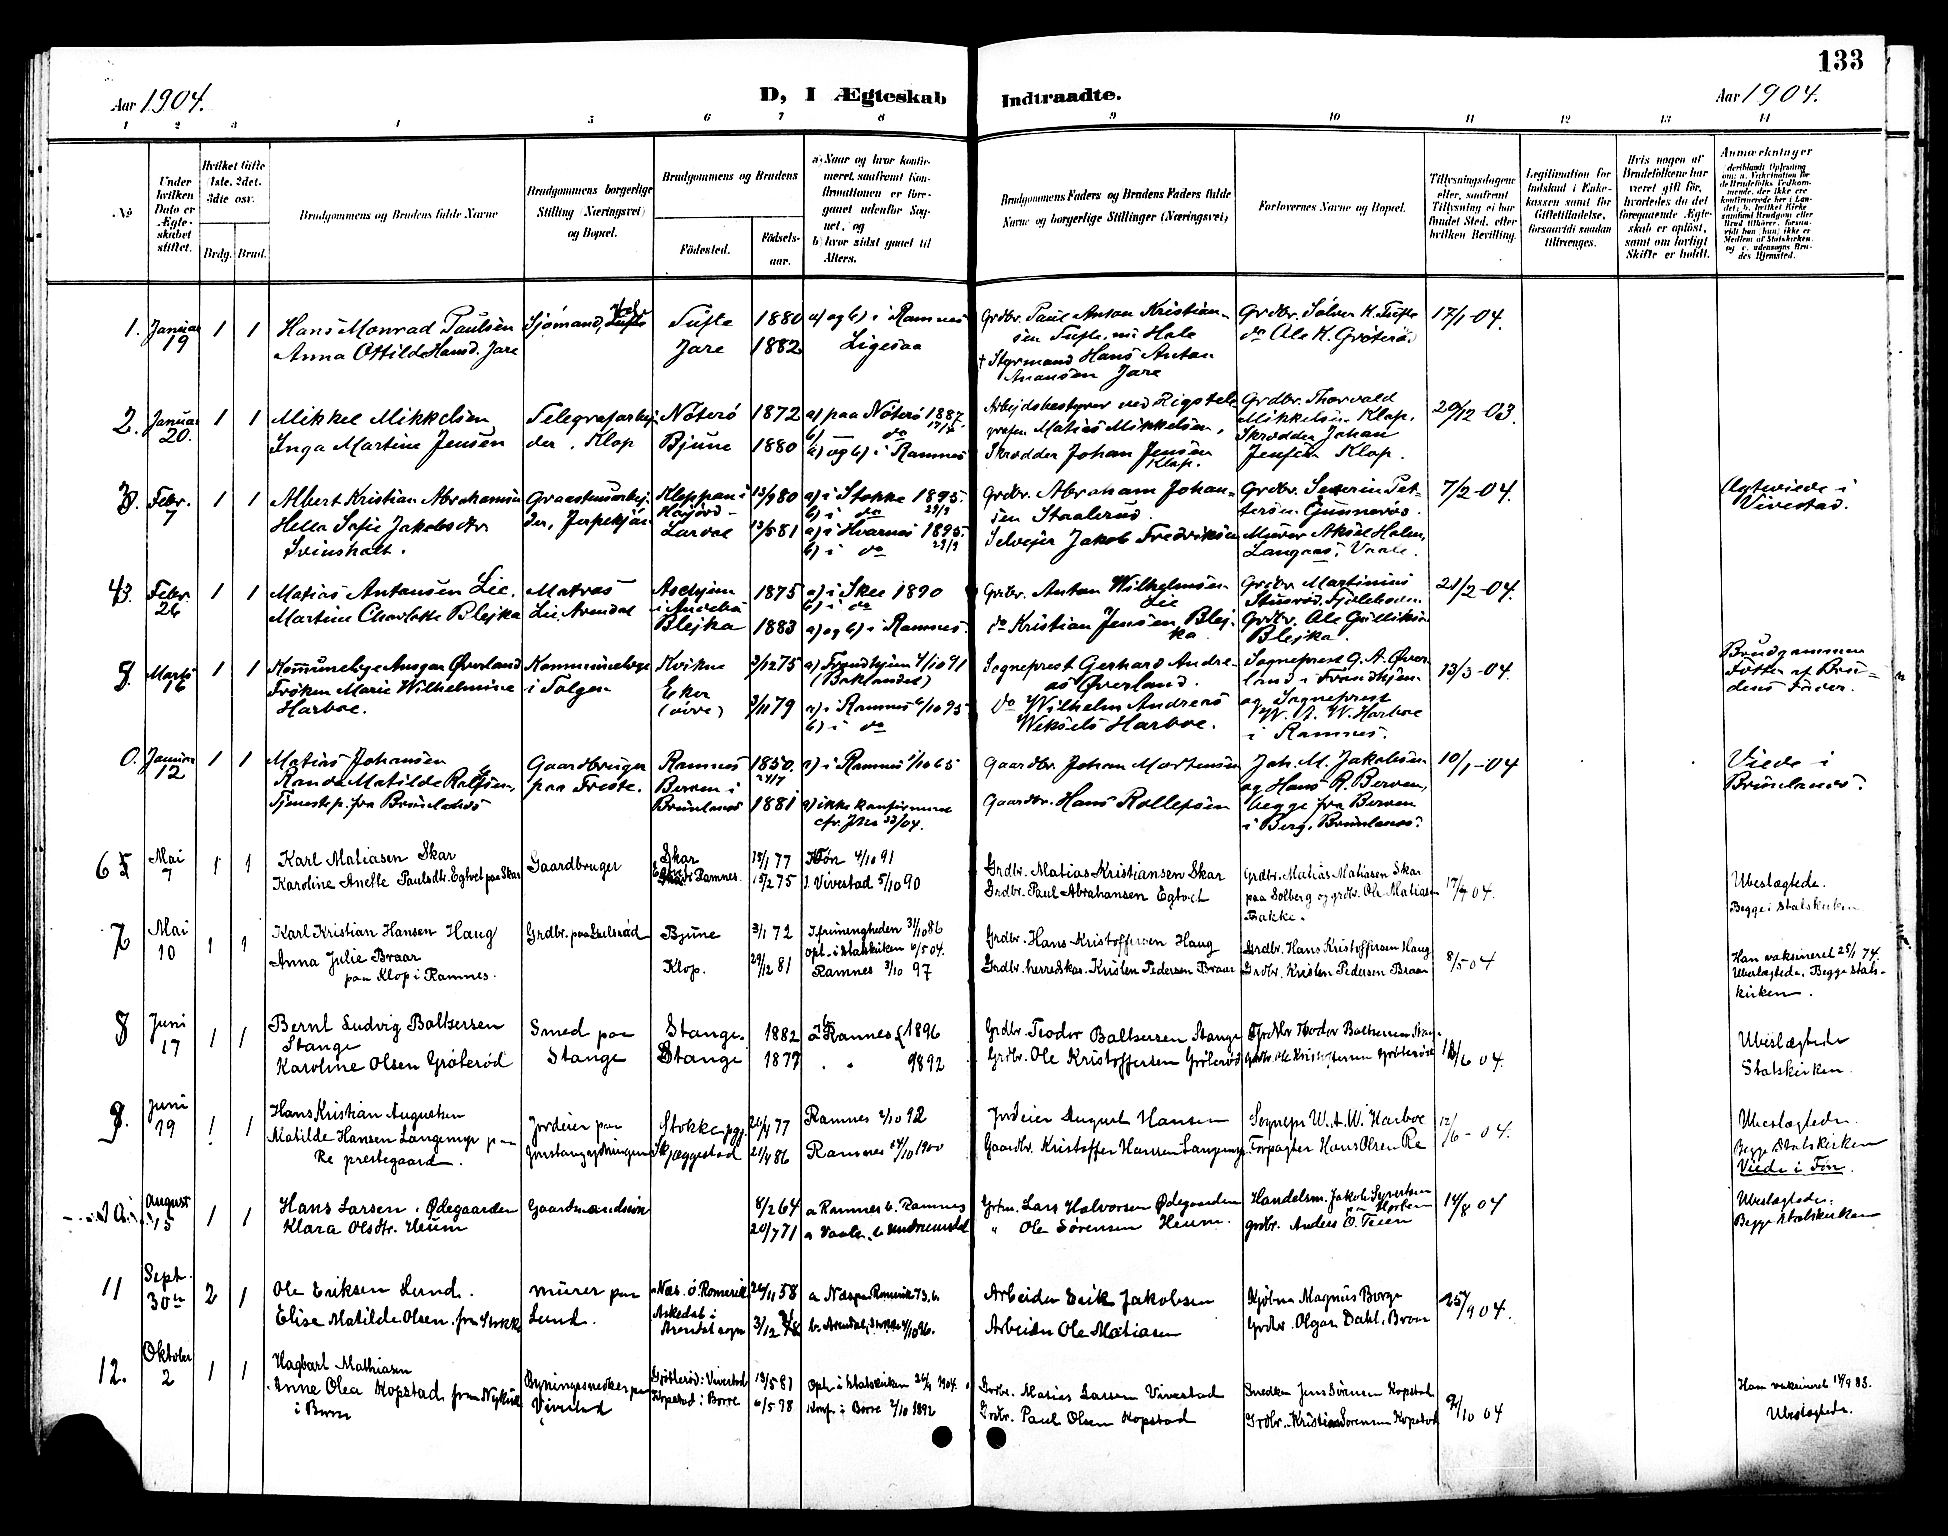 133
Aar 1904.
D, I Ægteskab Indtraadte.
Aar 1904.
1 2 3 4 5 6 7 8 9 10 11 12 13 14
No
Under hvilken Dato er Ægteskabet stiftet.
Hvilket Gifte 1ste, 2det, 3die osv.
Brdg. Brud.
Brudgommens og Brudens fulde Navne
Brudgommens borgerlige Stilling (Næringsvei) og Bopæl.
Brudgommens og Brudens
Fødested.
Fødselsaar.
a) Naar og hvor konfirmeret, saafremt Konfirmationen er foregaaet udenfor Sognet, og
b) hvor sidst gaaet til Alters.
Brudgommens Faders og Brudens Faders fulde Navne og borgerlige Stillinger (Næringsvei)
Forlovernes Navne og Bopæl.
Tillysningsdagene eller, saafremt Tillysning ei har fundet Sted, efter hvilken Bevilling.
Legitimation for Indskud i Enkekassen samt for Giftetilladelse, forsaavidt saadan tiltrænges.
Hvis nogen af Brudefolkene har været gift før, hvorledes da det foregaaende Ægteskab er opløst, samt om lovligt Skifte er holdt.
Anmærkninger
1. Januar 19 1 1 Hans Monrad Paulsen Sjømand, Tufte 1880 a) og b) i Ramnes Grdbr. Paul Anton Kristiansen Tufte, nu Hole Grdbr. Sølver K. Tufte 17/1-04.
Anna Ottilde Hansd. Jare Jare 1882 Ligesaa † Styrmand Hans Anton Anansen Jare do Ole K. Grøterø
2. Januar 20. 1 1 Mikkel Mikkelsen Telegrafarbejder, Klop Nøterø 1872 a) paa Nøterø 1887. b) do Arbejdsbestyrer ved Rigstelegrafen Matias Mikkelsen, Grdbr. Thorvald Mikkelsen Klop. 20/12-03.
Inga Martine Jensen Bjune 1880 a) og b) i Ramnes Skrædder Johan Jensen Klop. Skrædder Johan Jensen Klop.
3. Febr. 7 1 1 Albert Kristian Abrahamsen Graastensarbejder, 13/9 80 a) i Stokke 1895. b) i do Grdbr. Abraham Johansen Staalerød. Grdbr. Severin Pettersen Gunnerød. 7/2-04. Ægteviede i Vivestad.
Hella Sofie Jakobsdtr Svinsholt. Lardal 13/5 81 a) i Hvarnes 1895. b) i do Selvejer Jakob Fredriksen Murer Aksel Holm, Langaas, Vaale.
Febr. 26 1 1 Matias Antonsen Lie. Matros Lie, Arendal Askjem i Andebu 1875 a) i Skee 1890 b) i do Grdbr. Anton Wilhelmsen Lie Grdbr. Martinius 21/2-04.
Martine Charlotte Blejka Blejka 1883 a) og b) i Ramnes. do Kristian Jensen Blejka. Grdbr. Ole Gulliksen Blejka.
Marts 16 1 1 Kommunelæge Ansgar Øverland Kommunelæge i Tolgen Kvikne 3/12 75 a) Trondhjem 4/10 91 (Baklandet) Sogneprest Gerhard Andreas Øverland. Sogneprest G. A. Øverland i Trondhjem 13/3-04. Brudgommen Fætter af Brudens Fader.
Frøken Marie Wilhelmine Harboe. Eker (øvre) 3/11 79 a) i Ramnes 6/10 95 b) i do do Wilhelm Andreas Weksels Harboe. og Sogneprest W. A. W. Harboe i Ramnes.
0. Januar 12 1 1 Matias Johansen Gaardbruger paa Freste. Ramnes 1850. a) i Ramnes 1/10 65 Gaardbr. Johan Martinsen Joh. M. Jakobsen og Hans R. Berven, begge fra Berven i Berg, Brunlanes. 10/1-04 Viede i Brunlanes.
Randa Matilde Rolfsen, Tjenestep. fra Brunlanes Berven i Brunlanes 1881 a) ikke konfirmeret cfr. Jnr 33/04. Gaardbr. Hans Rollefsen
6 Mai 7 1 1 Karl Matiasen Skar Gaardbruger Skar 18/1 77 Tøn 4/10 91 Grdbr. Matias Kristiansen Skar Grdbr. Matias Matiasen Skar paa Solberg og grdbr. Ole Matiasen Bakke. 17/4 04. Ubeslægtede. Begge i statskirken
Karoline Anette Paulsdtr. Egtvet paa Skar Ramnes. 15/2 75 i Vivestad 5/10 90 Grdbr. Paul Abrahamsen Egtvet
7 Mai 10 1 1 Karl Kristian Hansen Haug Grdbr. Bjune 3/1 72 I frimenigheden 31/10 86 opt. i Statskirken 6/5 04. Grdbr. Hans Kristoffersen Haug Grdbr. Hans Kristoffersen Haug 8/5 04 Han vaksineret 25/1 74. Ubeslægtede. Begge statskirken.
Anna Julie Braar paa Klop i Ramnes. Klop. 29/12 81 Ramnes 3/10 97 Grdbr. herredskas. Kristen Pedersen Braar Grdbr. Kristen Pedersen Braar
8 Juni 17 1 1 Bernt Ludvig Baltsersen Stange Smed paa Stange Stange. 1882 Ramnes 1896 Grdbr. Teodor Baltsersen Stange Grdbr Teodor Baltsersen Stange 04. Ubeslægtede Statskirken.
Karoline Olsen Grøterød Stange 1877 " " 9892 Grdbr. Ole Kristoffersen Grøterød grdbr. Ole Kristoffersen Grøterød
9. Juni 19 1 1 Hans Kristian Augustsen Jordeier paa Stokke pgj. 21/4 77 Ramnes 2/10 92 Jordeier August Hansen Sognepr. W. A. W. Harboe 12/6-04. Ubeslægtede. Begge Statskirken Viede i Tøn.
Matilde Hansen Langemyr paa Re prestegaard. Skjæggestad 21/4 86 Ramnes 14/10 1900 Gaardbr. Kristoffer Hansen Langemyr Forpagter Hans Olsen Re
10. August 15 1 1 Hans Larsen Ødegaarden Gaardmandssøn 8/2 64 a Ramnes b. Ramnes Grdm. Lars Halvorsen Ødegaarden Handelsm. Jakob Syvertsen 14/8 04 Ubeslægtede. Begge Statskirken
Klara Olsdtr. Heum 20/7 71 a Vaale. b. Undrumsdal " Ole Sørensen Heum. grdbr. Anders O. Teien
11 Sept. 30te 2 1 Ole Eriksen Lund. murer paa Lund. Næs. Ø. Romerike 26/11 58 a Næs paa Romerik 73. b. Arbeider Erik Jakobsen Kjøbm Magnus Borge 25/9 04.
Elise Matilde Olsen. fra Stokke Askedal i Arendal sogn 3/12 78 Arbeider Ole Matiasen Grdbr. Olgar Dahl, Borre
12. Oktober 2 1 1 Hagbart Mathiasen Bygningssnedker paa Vivestad Grøtterød: Vivestad 19/5 81 Opt. i Statskirken 26/9 1904. Grdbr. Matias Larsen Vivestad Snedker Jens Sørensen Kopstad 2/10 04 Ham vaksineret 14/9 83. Ubeslægtede.
Anne Olea Kopstad fra Nykirke i Borre Kopstad i Borre 6/5 78 Konf. i Borre 2/10 1892 Grdbr. Paul Olsen Kopstad Grdbr. Kristian Sørensen Kopstad